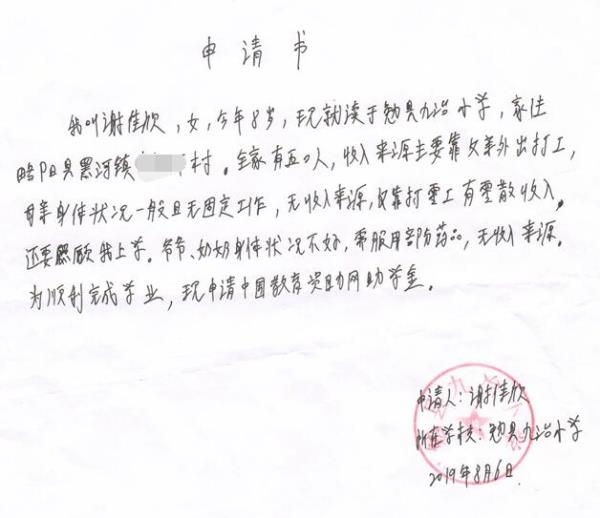 申请书
我叫谢佳欣，女，今年8岁，现就读于勉县九冶小学，家住
略阳县黑河镇村。全家有五口人，收入来源主要靠父亲外出打工，
母亲身体状况一般且无固定工作，无收入来源，仅靠打零工有零散收入，
还要照顾我上学。爷爷、奶奶身体状况不好，需服用药品，无收入来源。
为顺利完成学业，现申请中国教育资助网助学金。
申请人：谢佳欣
所在学校：勉县九冶小学
2019年8月6日.